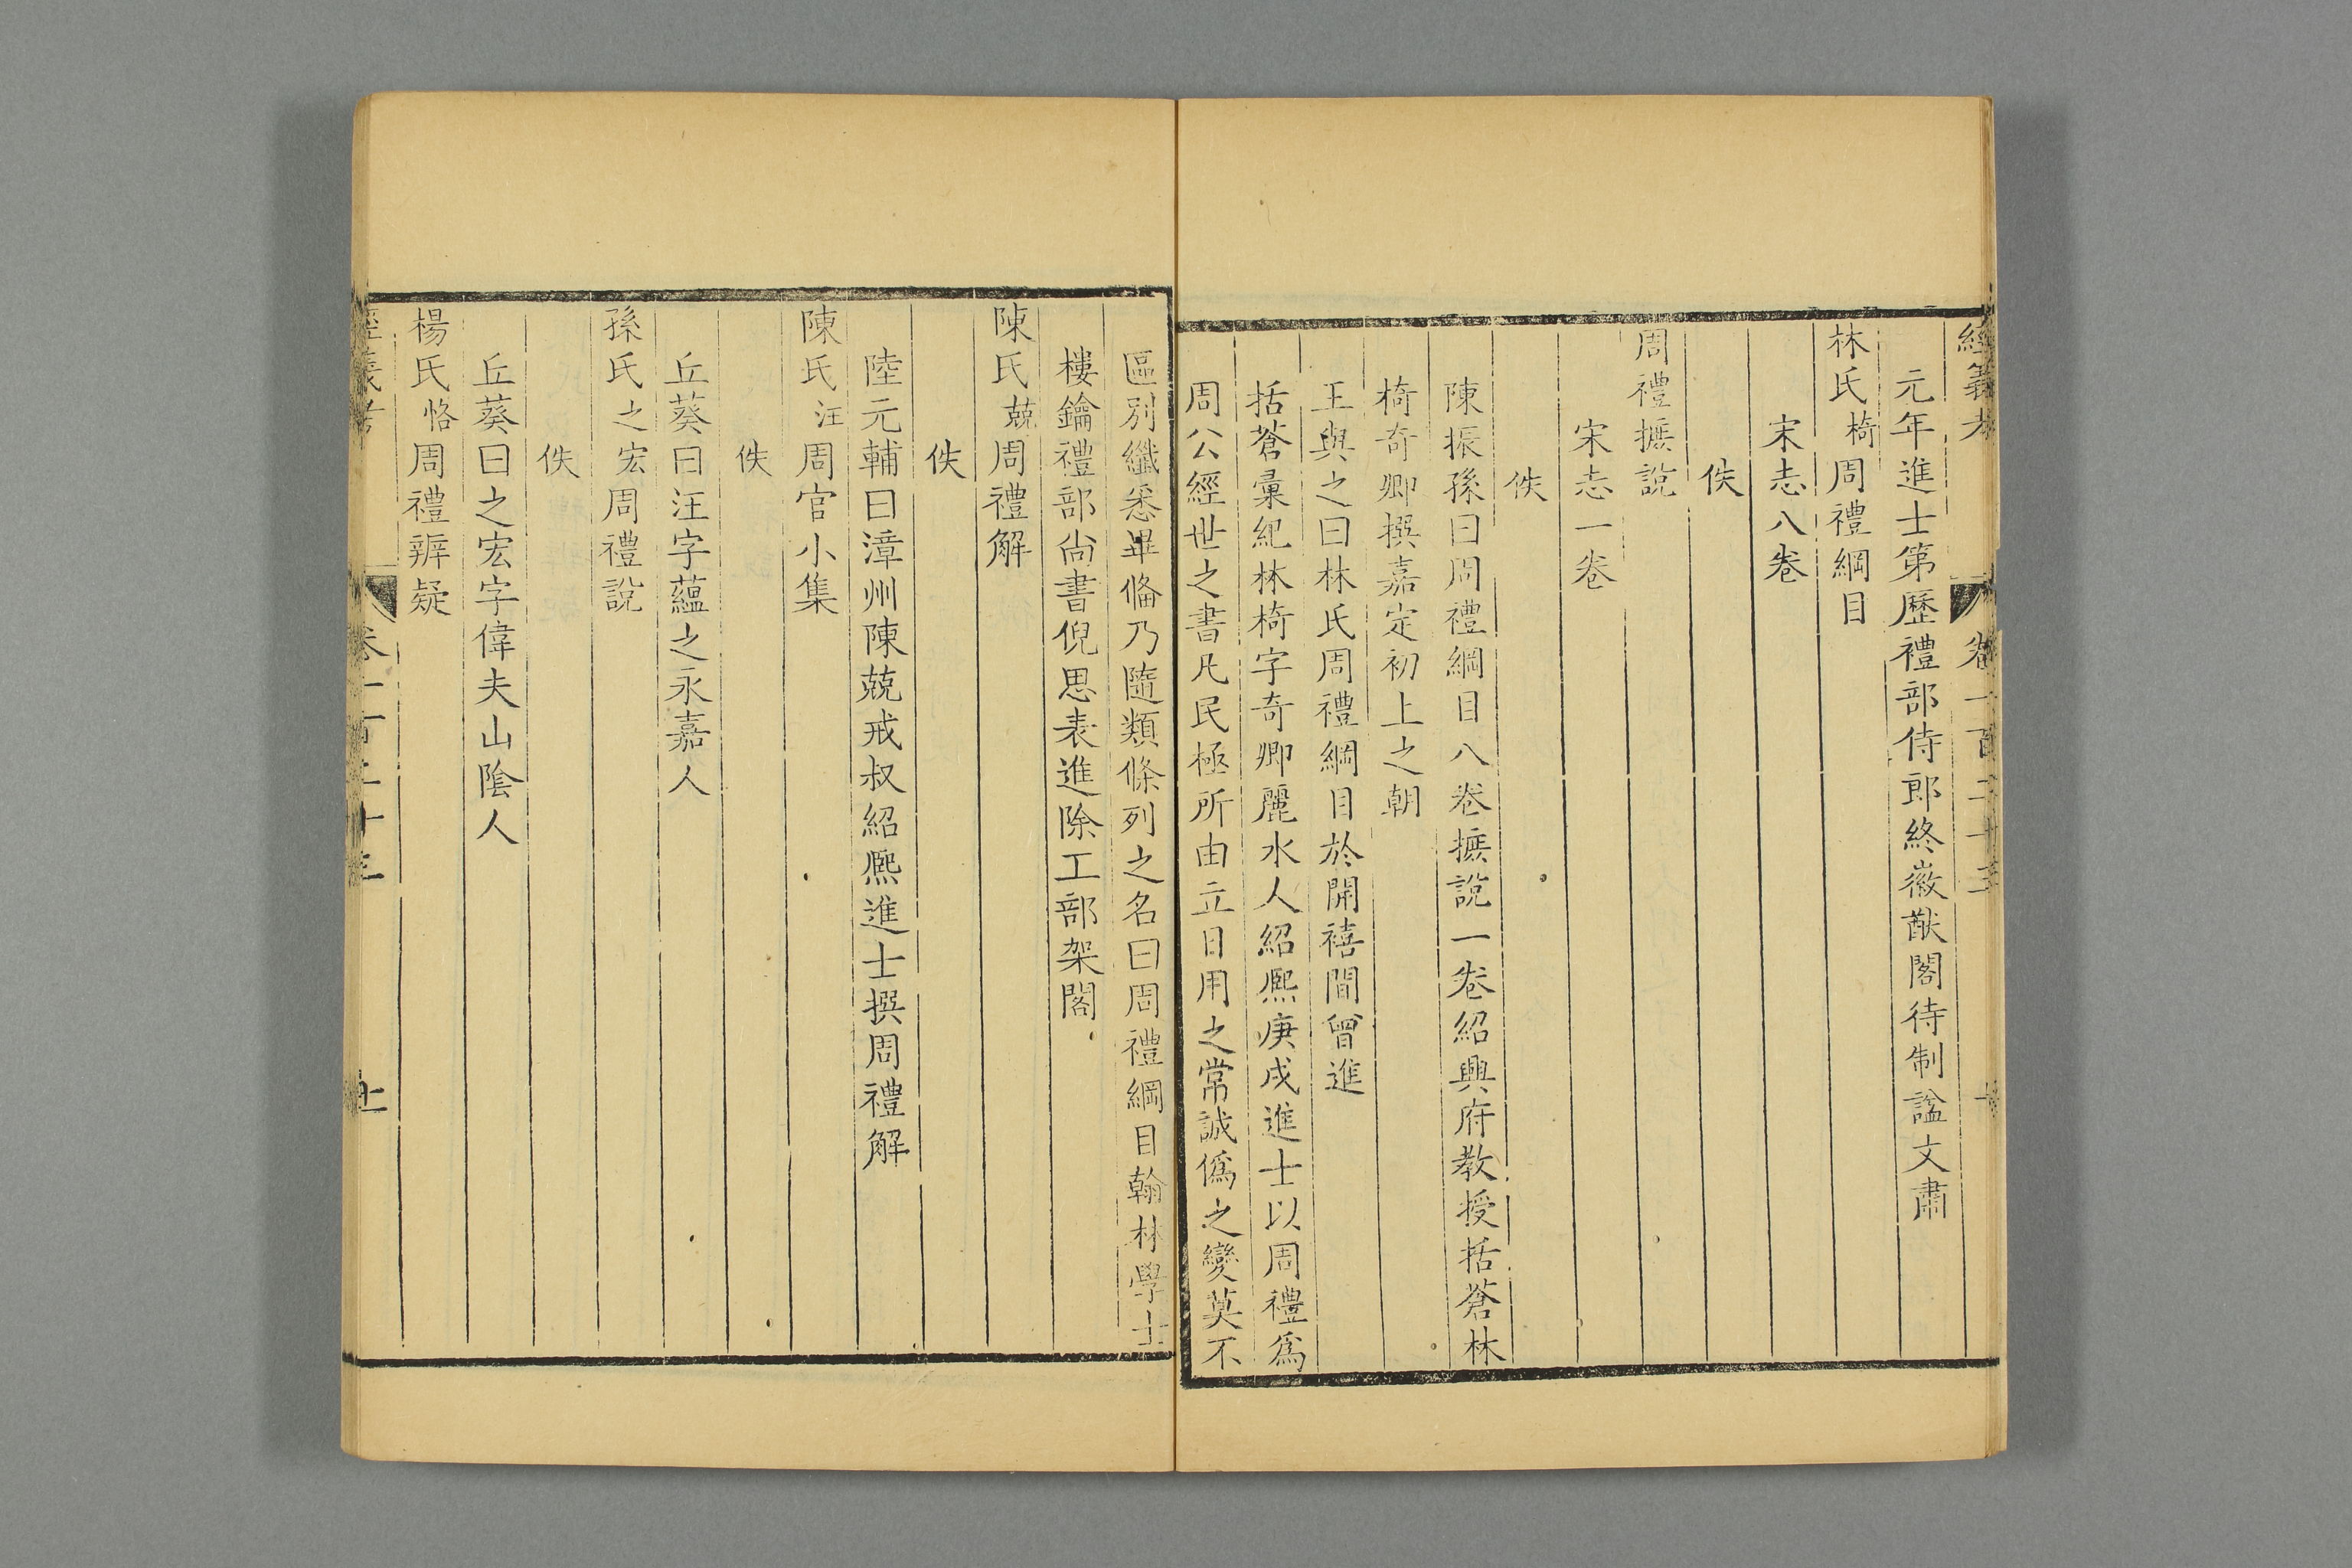 經義考 卷一百二十三 十
元年進士第歷禮部侍郎終徽猷閣待制諡文肅
林氏椅周禮綱目
宋志八卷
佚
周禮摭說
宋志一卷
佚
陳振孫曰周禮綱目八卷摭說一卷紹興府教授括蒼林
椅奇卿撰嘉定初上之朝
王與之曰林氏周禮綱目於開禧間曾進
括蒼彙紀林椅字奇卿麗水人紹熙庚戌進士以周禮爲
周公經世之書凡民極所由立日用之常誠僞之變莫不
區別纖悉畢備乃隨類條列之名曰周禮綱目翰林學士
樓鑰禮部尙書倪思表進除工部架閣
陳氏兢周禮解
佚
陸元輔曰漳州陳兢戒叔紹熙進士撰周禮解
陳氏汪周官小集
佚
丘葵曰汪字蘊之永嘉人
孫氏之宏周禮說
佚
丘葵曰之宏字偉夫山陰人
楊氏恪周禮辨疑
經義考 卷一百二十三 十一